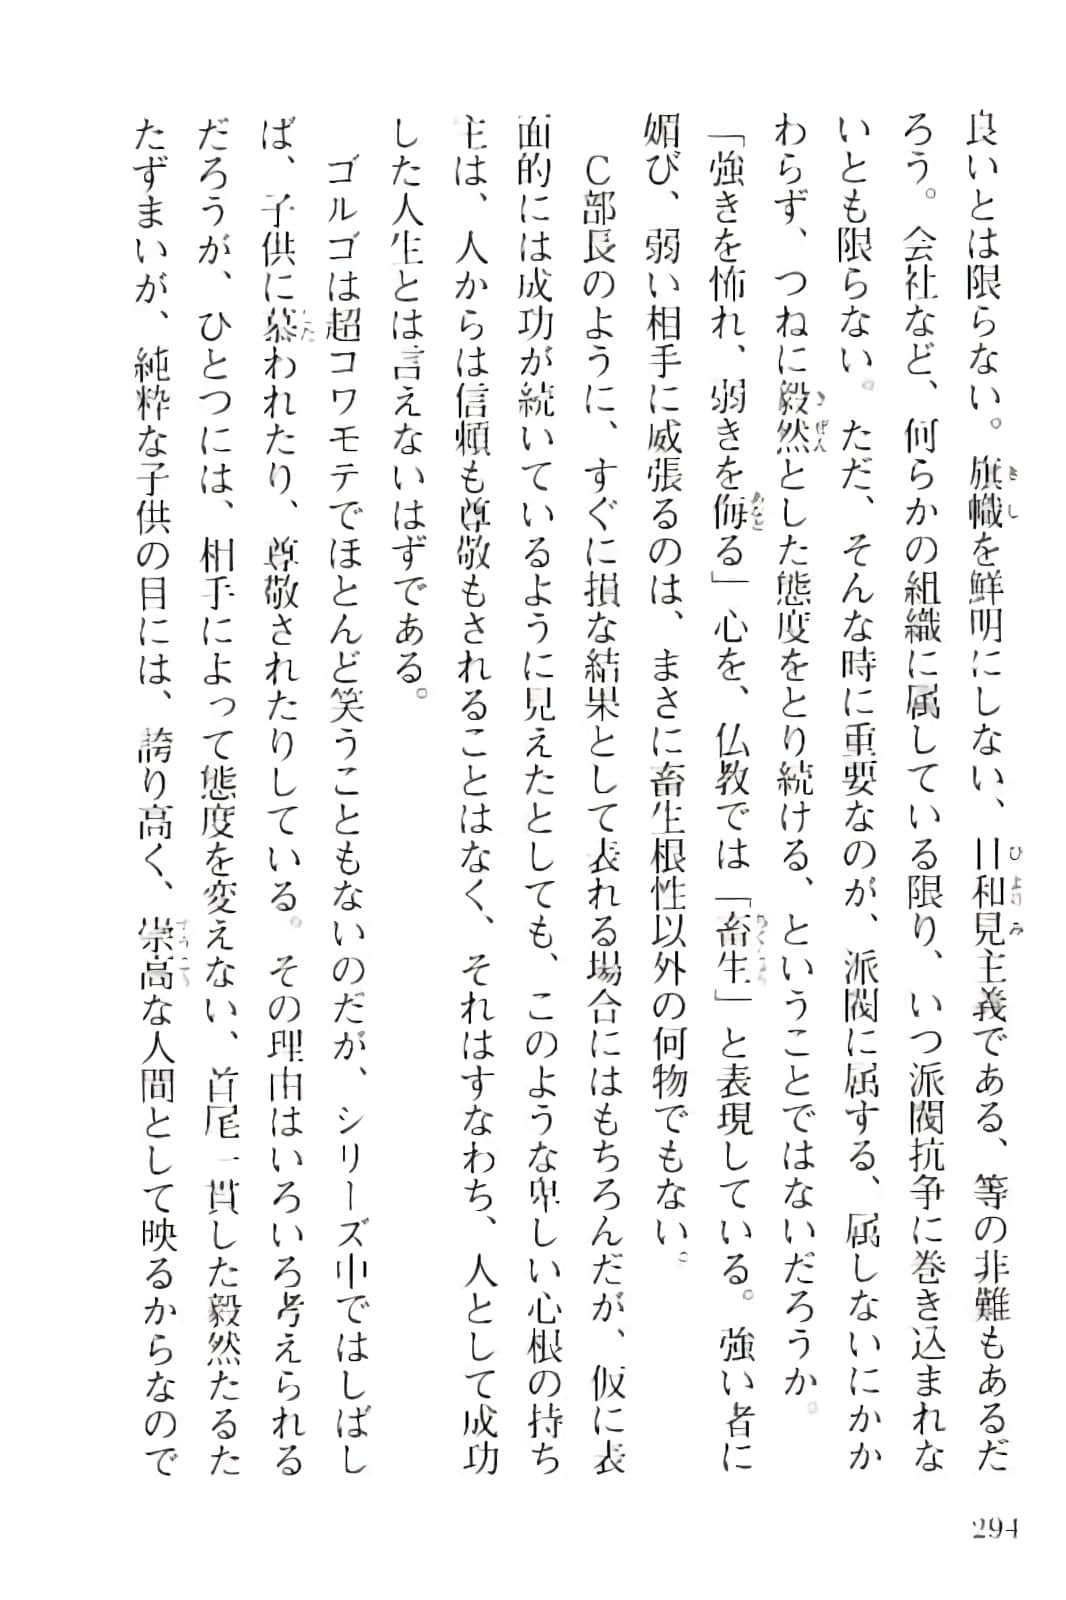 良いとは限らない。旗幟を鮮明にしない、日和見主義である、等の非難もあるだ
ろう。会社など、何らかの組織に属している限り、いつ派閥抗争に巻き込まれな
いとも限らない。ただ、そんな時に重要なのが、派閥に属する、属しないにかか
わらず、つねに毅然とした態度をとり続ける、ということではないだろうか。
「強きを怖れ、弱きを侮る」心を、仏教では「畜生」と表現している。強い者に
媚び、弱い相手に威張るのは、まさに畜生根性以外の何物でもない。
　C部長のように、すぐに損な結果として表れる場合にはもちろんだが、仮に表
面的には成功が続いているように見えたとしても、このような卑しい心根の持ち
主は、人からは信頼も尊敬もされることはなく、それはすなわち、人として成功
した人生とは言えないはずである。
　ゴルゴは超コワモテでほとんど笑うこともないのだが、シリーズ中ではしばし
ば、子供に慕われたり、尊敬されたりしている。その理由はいろいろ考えられる
だろうが、ひとつには、相手によって態度を変えない、首尾一貫した毅然たるた
たずまいが、純粋な子供の目には、誇り高く、崇高な人間として映るからなので
294